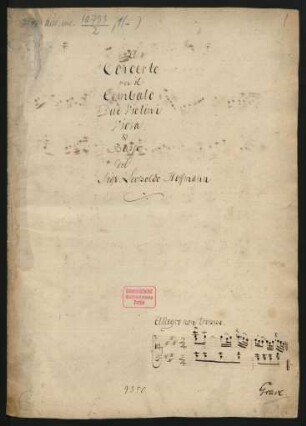 Concerto
per il
Cembalo
Due Violini
Viola
e
Basso
del
Sigr. Leopoldo Hofmann
Allegro non troppo
9350
Grave